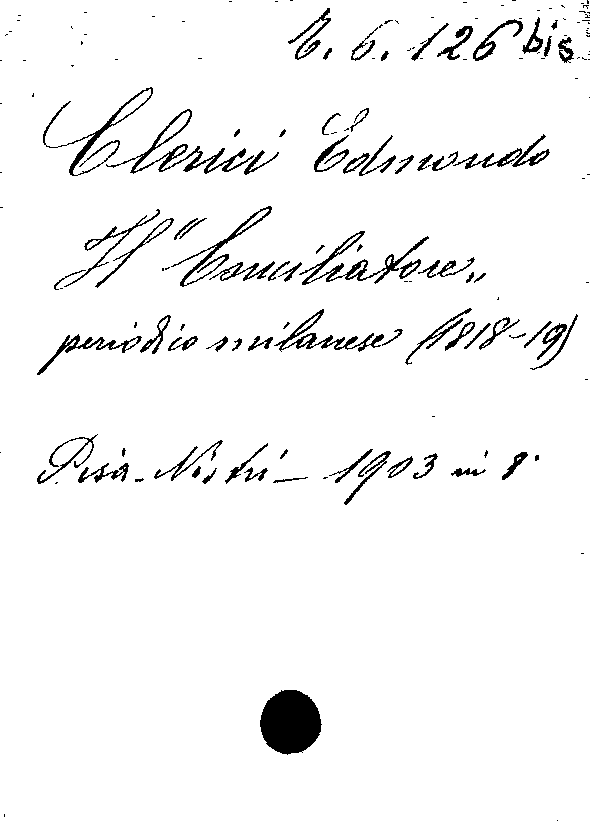 E. 6. 126 bis
Clerici Edmondo
Il "Conciliatore„
periodico milanese (1818-19)
Pisa - Nistri - 1903 in 8°